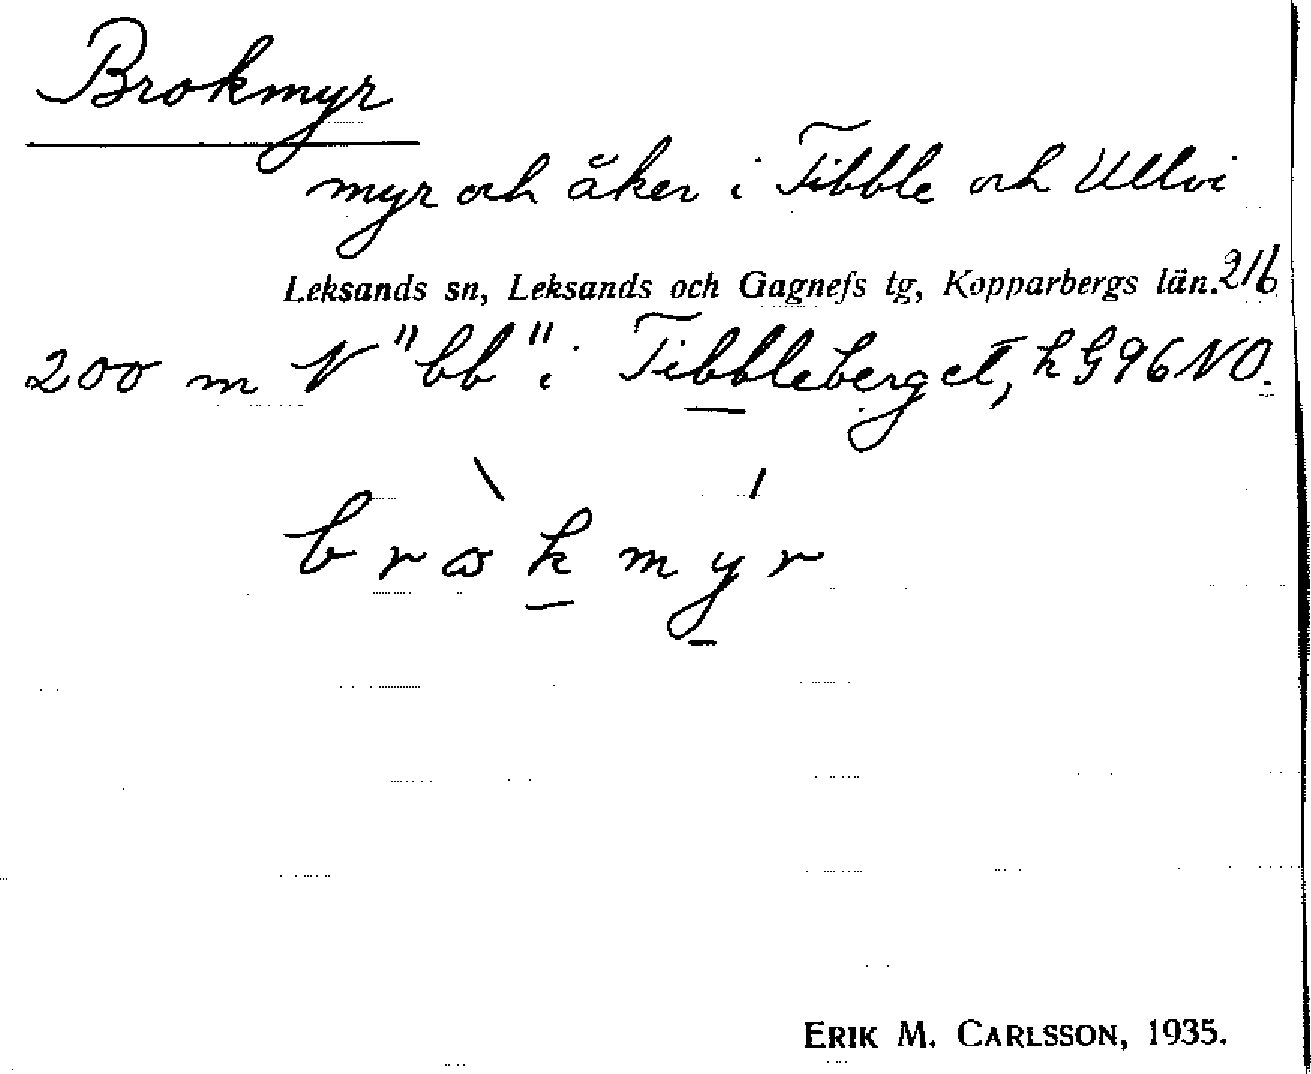 Brokmyr
myr och åker i Tibble och Ullvi
Leksands sn, Leksands och Gagnefs tg, Kopparbergs län. 216
200 m N "bb" i Tibbleberget, k G96NO.
brωkmyr
ERIK M. CARLSSON, 1935.